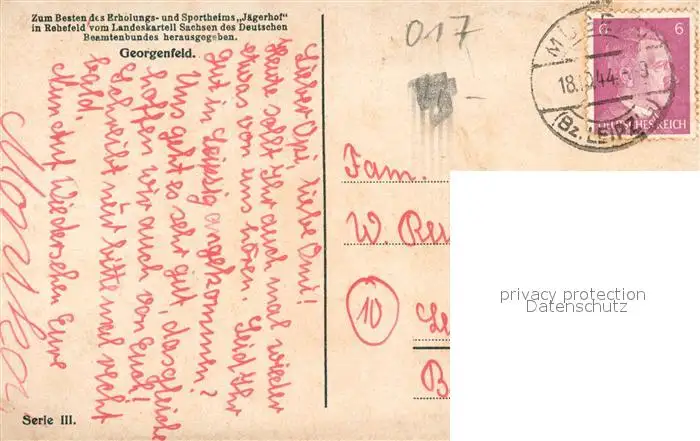 Zum Besten des Erholungs- und Sportheims „Jägerhof"
in Rehefeld vom Landeskartell Sachsen des Deutschen
Beamtenbundes herausgegeben.
Georgenfeld.
Lieber Opi, liebe Omi!
Heute sollt Ihr auch mal wieder
etwas von uns hören. Seid Ihr
gut in Leipzig angekommen?
Uns geht es sehr gut, dasgleiche
hoffen wir auch von Euch!
Schreibt nur bitte mal recht
bald.
Nun auf Wiedersehen Eure
Monika
Serie III.
017
6 6
DEUTSCHES REICH
18. 44
(Bz. LEIPZIG)
Fam.
W.
10
privacy protection
Datenschutz